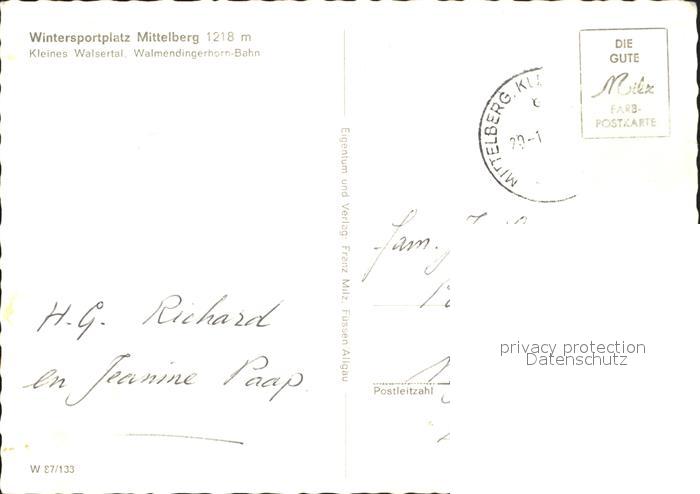 Wintersportplatz Mittelberg 1218 m
Kleines Walsertal, Walmendingerhorn-Bahn
DIE
GUTE
Milz
FARB-
POSTKARTE
MITTELBERG, KL
Eigentum und Verlag: Franz Milz, Füssen Allgäu
fam.
H.G. Richard
en Jeanine Paap
privacy protection
Datenschutz
Postleitzahl
W 87/133